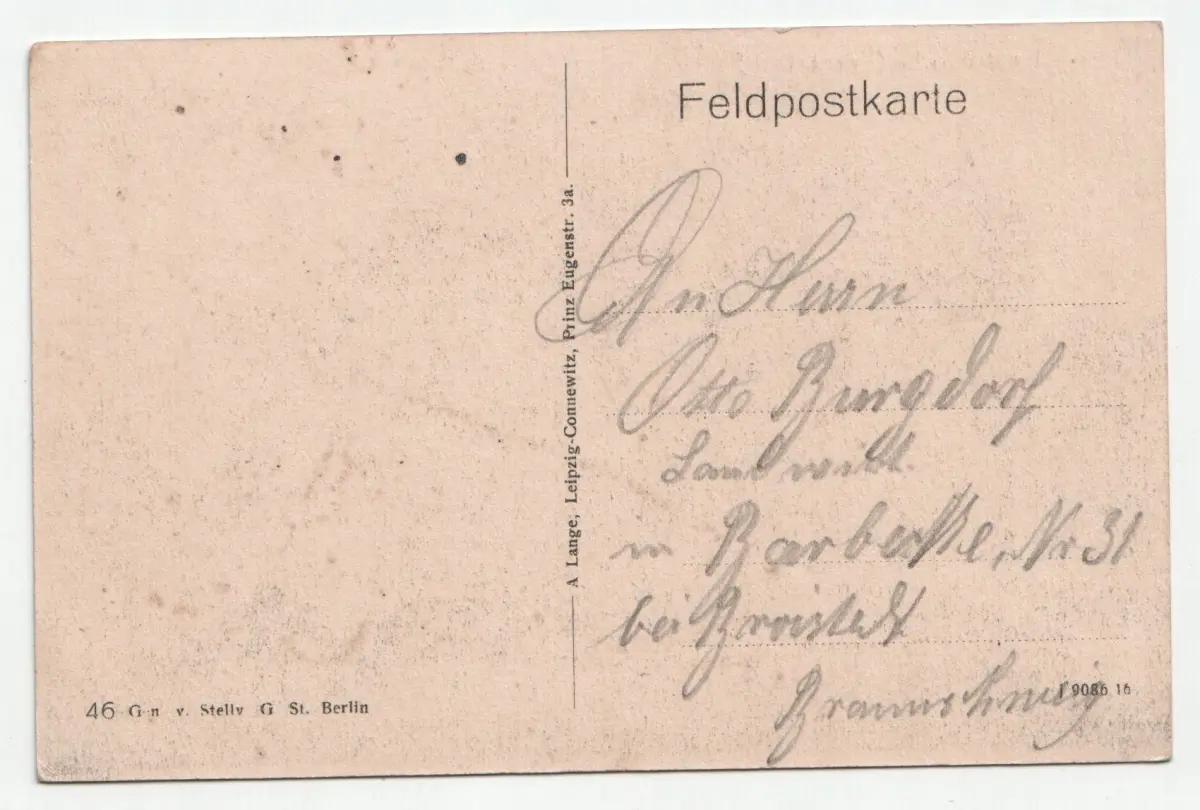 Feldpostkarte
A Lange, Leipzig-Connewitz, Prinz Eugenstr. 3a.
An Herrn
Otto Burgdorf
Landwirt.
in Barbecke, Nr 31
bei Broistedt
Braunschweig
I 9086 16
46 G n v. Stellv G St. Berlin